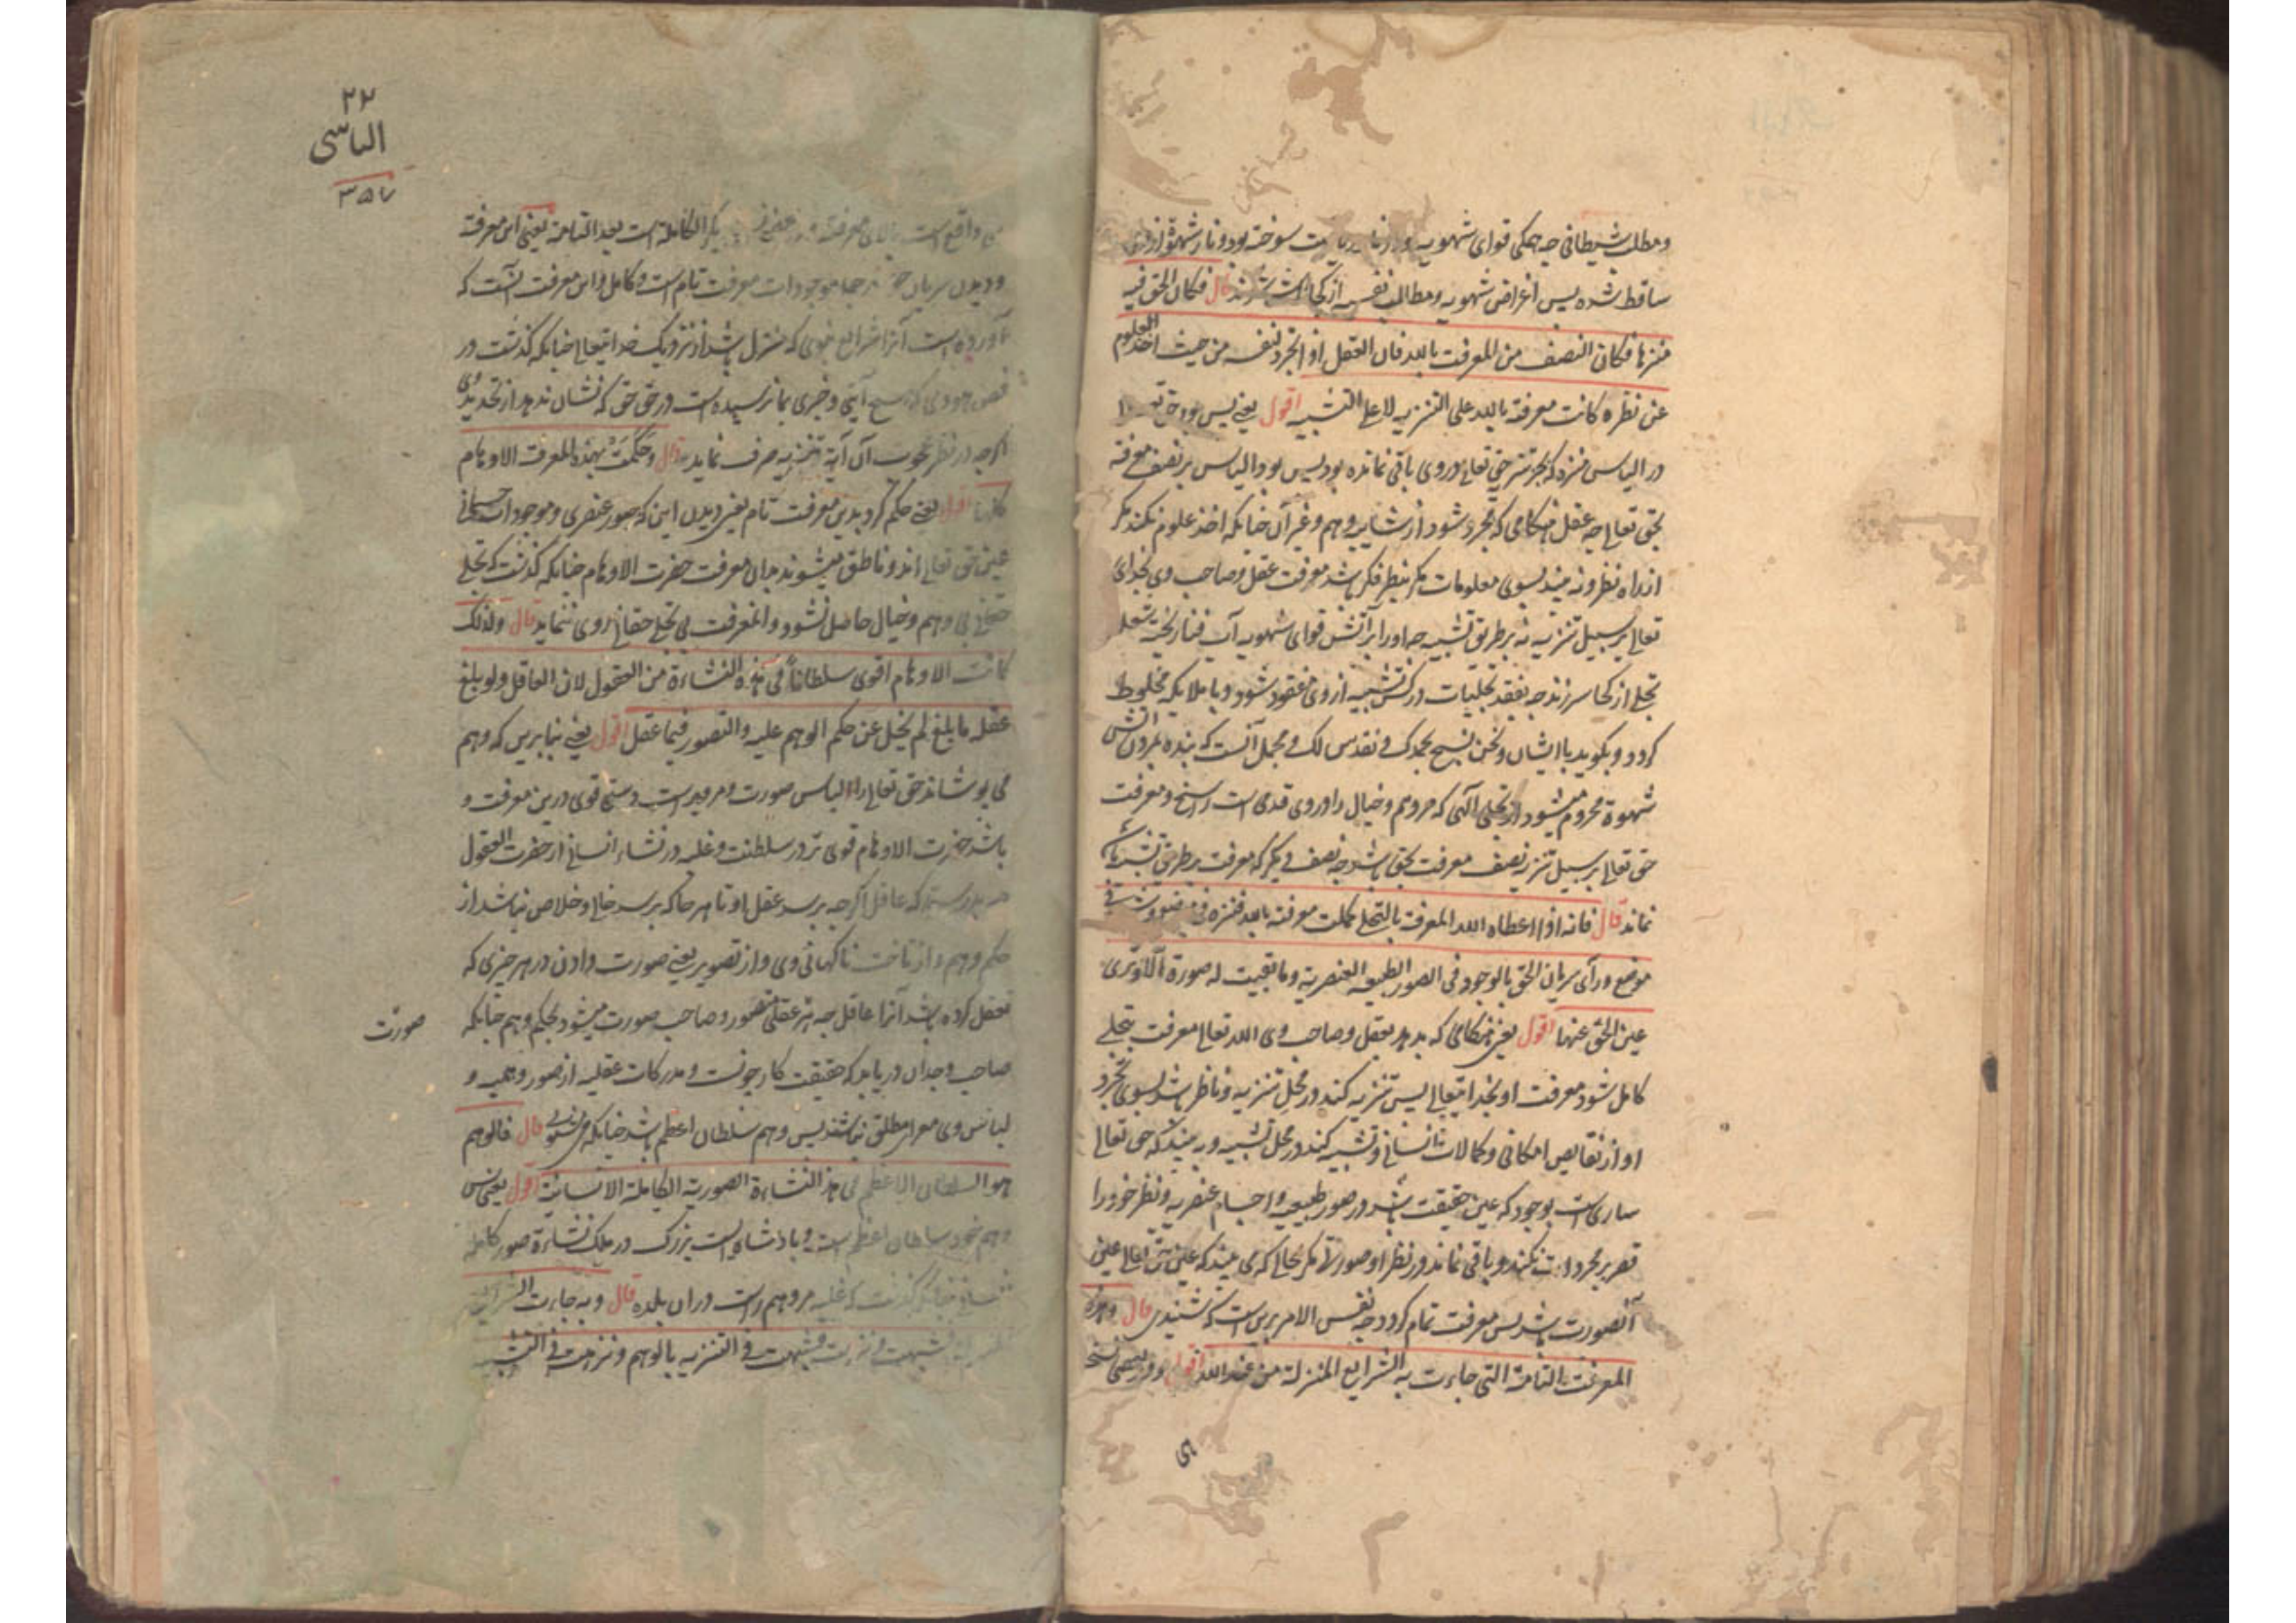 ومطلب شیطانی چه جمکی قوای شهویه سوخته بود و نار شهوة از وی
ساقط شده پس اغراض شهویه و مطالب نفسیه از کجا قال فکان الحق فیه
منزها فکان النصف من المعرفت بالله فان العقل اذا تجرد لنفسه من حیث اخذ العلوم
عن نظره کانت معرفة بالله علی التنزیه لا علی التشبیه اقول یعنی پس بود حق
در الیاس منزه که بجز تنزه حق تعالی در وی باقی نمانده بود پس بود الیاس بر نصف معرفة
بحق تعالی چه عقل هنکامی که مجرد شود از شایبه وهم و غیر آن چنانکه اخذ علوم نکند مکر
از راه نظر و نه بیند بسوی معلومات مکر بنظر فکر باشد معرفت عقل و صاحب وی بخدای
تعالی بر سبیل تنزیه نه بر طریق تشبیه چه او را بر آتش قوای شهویه آب فنا ریخته شعله
تجلی از کجا سر زند چه بفقد تجلیات درک تشبیه از وی مفقود شود و با ملایکه مخلوط
کردد و بکوید با ایشان ونحن نسبح بحمدک ونقدس لک و مجمل آنست که بنده بمردن آتش
شهوة محروم میشود از تجلی الهی که در وهم و خیال را در وی قدمی است راسخ و معرفت
حق تعالی بر سبیل تنزیه نصف معرفت بحق باشد چه نصف دیکر که معرفت بر طریق تشبیه
نماند قال فانه اذا اعطاه الله المعرفة بالتجلی کملت معرفته بالله فنزه فی موضع وشبه فی
موضع ورآی سریان الحق بالوجود فی الصور الطبیعیه العنصریة وما بقیت له صورة الا وتری
عین الحق عینها اقول یعنی هنکامی که بدهد بعقل و صاحب وی الله تعالی معرفت بتجلی
کامل شود معرفت او بخدایتعالی پس تنزیه کند در محل تنزیه و ناظر باشد بسوی تجرد
او از نقایص امکانی و کمالات انسانی و تشبیه کند در محل تشبیه و به بیند که حق تعالی
ساری است بوجود که عین حقیقت باشد در صور طبیعیه و اجسام عنصریه و نظر خود را
قصر بر مجردات نکند و باقی نماند در نظر او صورتی مکر بحالی که می بیند که عین حق تعالی عین
آنصورت باشد پس معرفت تمام کردد چه نفس الامر برین است که شنیدی قال وهذه
المعرفت التامة التی جاءت به الشرایع المنزلة من عند الله اقول و در بعضی نسخ
۲۲
الیاسی
۳۵۷
واقع است بالای معرفت الکاملة است بعد التامة یعنی این معرفة
و دیدن سریان حق در جمله موجودات معرفت تام است و کامل و این معرفت آنست که
آورده است آنرا شرایع نبوی که منزل باشد از نزدیک خدایتعالی چنانکه کذشت در
فص هودی که هیچ آیتی و خبری بما نرسیده است در حق حق که نشان ندهد از تحدید وی
اکرچه در نظر محجوب آن آیة بتنزیه صرف نماید قال وحکمت بهذه المعرفت الاوهام
کلها اقول یعنی حکم کرد بدین معرفت تام یعنی دیدن این که صور عنصری و موجودات جسمانی
عین حق تعالی اند و ناطق میشوند بدان معرفت حضرت الاوهام چنانکه کذشت که تجلی
حقانی بی وهم و خیال حاصل نشود و المعرفت بی تجلی حقانی روی ننماید قال ولذلک
کانت الاوهام اقوی سلطاناً فی هذه النشاءة من العقول لان العاقل ولو بلغ
عقله ما بلغ لم یخل عن حکم الوهم علیه والتصور فیما عقل اقول یعنی بنابرین که وهم
می پوشاند حق تعالی را لباس صورت و مر ویراست دستی قوی درین معرفت و
باشد حضرت الاوهام قوی تر در سلطنت و غلبه در نشاء انسانی از حضرت العقول
چه بدرستیکه عاقل اکرچه برسد عقل او تا هر جا که برسد خالی و خلاص نباشد از
حکم وهم و از تاخت ناکهانی وی و از تصویر یعنی صورت دادن در هر چیزی که
تعقل کرده باشد آنرا عاقل چه هر عقلی متصور و صاحب صورت میشود بحکم وهم چنانکه
صورت
صاحب وجدان دریابد که حقیقت کار چونست و مدرکات عقلیه از صور وهمیه و
لباس وی معرا مطلق نباشند پس وهم سلطان اعظم باشد چنانکه می شنوی قال فالوهم
هو السلطان الاعظم فی هذ النشاءة الصوریة الکاملة الانسانیة اقول یعنی پس
وهم خود سلطان اعظم است و پادشاهیست بزرک در ملک نشاءة صور کامله
چنانکه کذشت که غلبه مر وهم راست دران بلده قال وبه جاءت الشرایع
فشبهت ونزهت شبهت فی التنزیه بالوهم ونزهت فی التشبیه